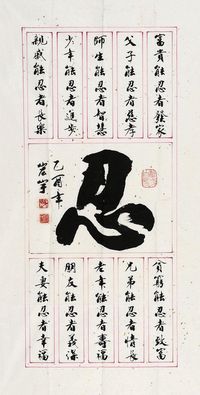 富貴能忍者發家
父子能忍者慈孝
師生能忍者智慧
少年能忍者進
親戚能忍者長
忍
乙酉年
貧窮能忍者致富
兄弟能忍者情長
老年能忍者壽
朋友能忍者義深
夫妻能忍者幸福